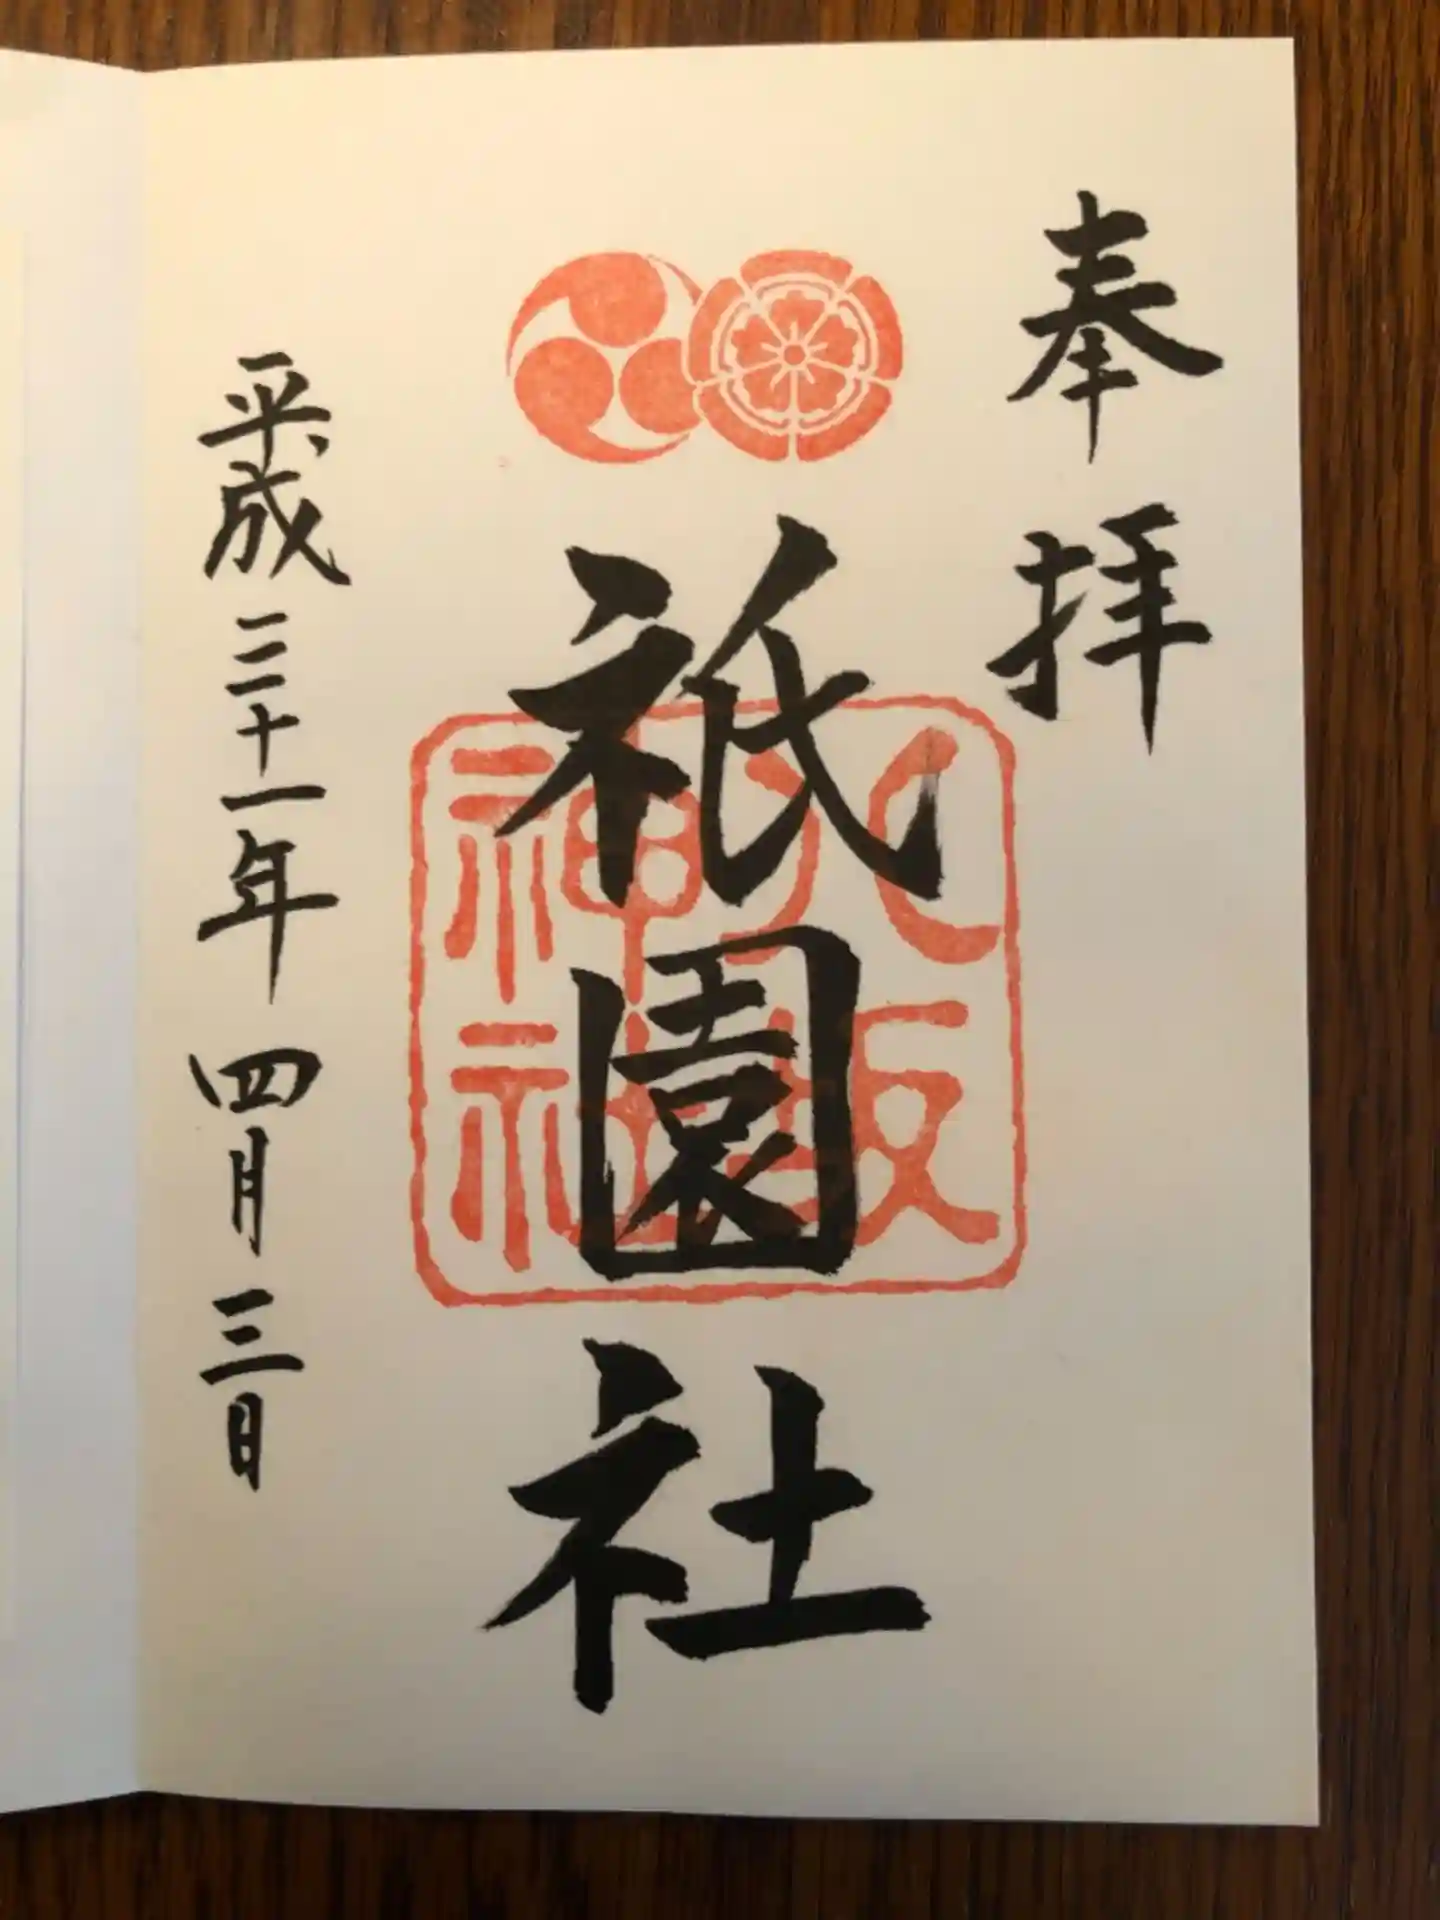 奉拝
祇園社
八坂
神社
平成三十一年四月三日